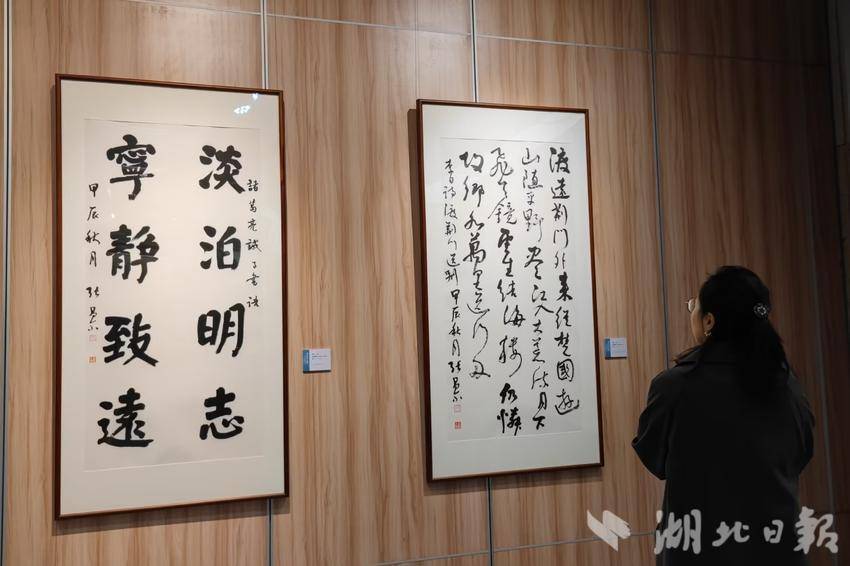 諸葛亮誡子書語
淡泊明志
寧靜致遠
甲辰秋月 張
渡遠荆門外來從楚國遊
山隨平野盡江入大荒流月下
飛天鏡雲生結海樓仍憐
故鄉水萬里送行舟
李白詩渡荆門送别 甲辰秋月 張
湖北日報